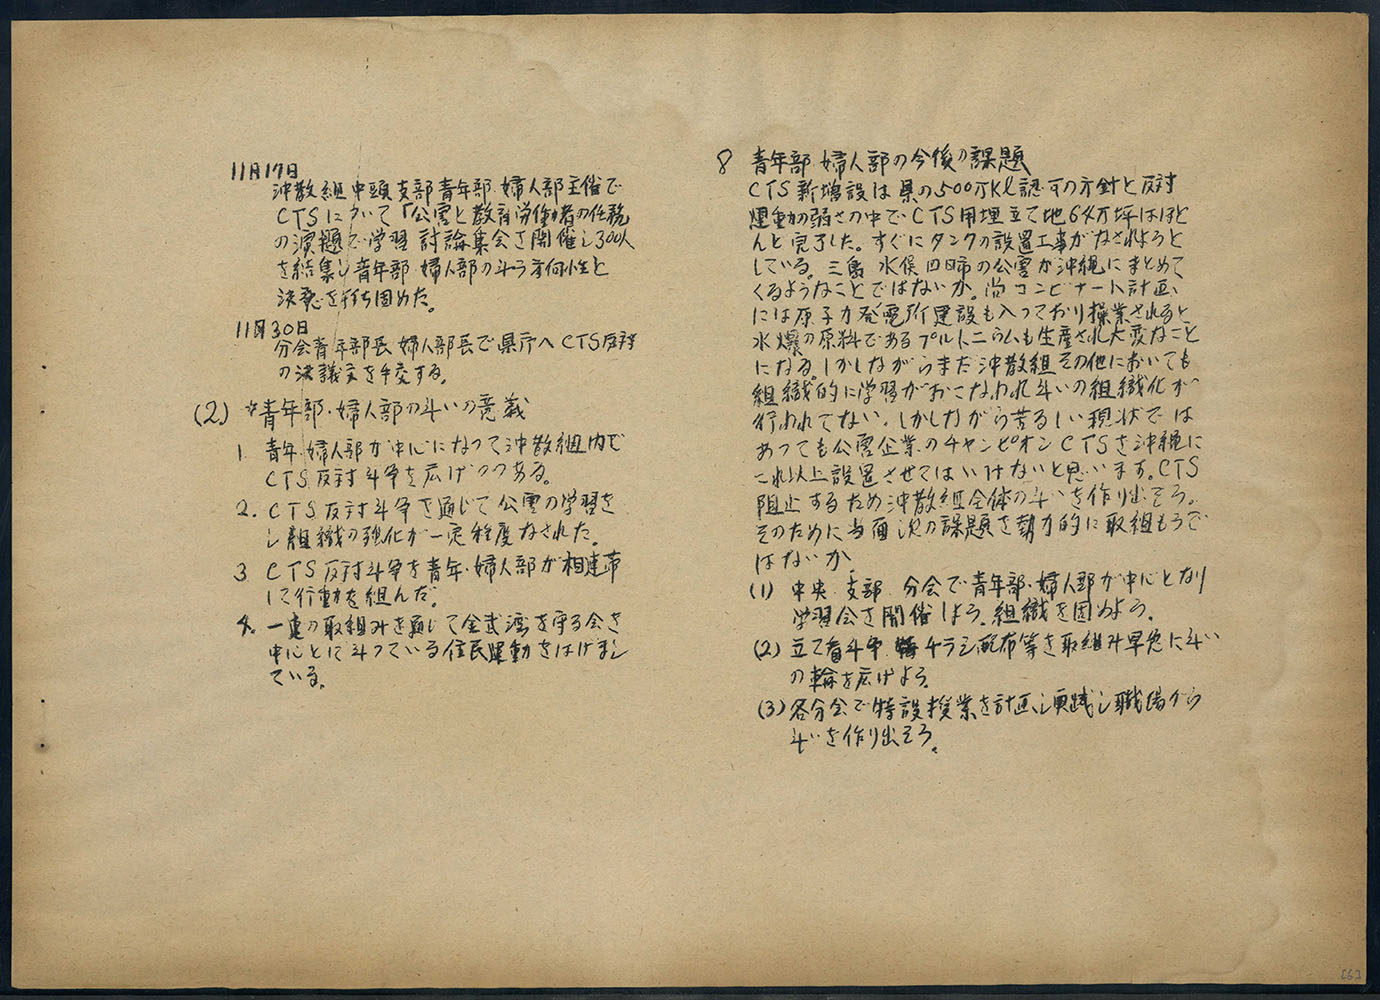 11月17日
沖教組中頭支部青年部・婦人部主催で
CTSにおいて「公害と教育労働者の任務
の演題で学習討論集会を開催し300人
を結集し青年部 婦人部の斗う方向性と
決意を打ち固めた。
11月30日
分会青年部長 婦人部長で県庁へCTS反対
の決議文を手交する。
(2) *青年部・婦人部の斗いの意義
1 青年・婦人部が中心になって沖教組内で
CTS反対斗争を広げつつある。
2. CTS反対斗争を通じて公害の学習を
し組織の強化が一定程度なされた。
3 CTS反対斗争を青年・婦人部が相連帯
して行動を組んだ。
4. 一連の取組みを通じて金武湾を守る会を
中心とに斗っている住民運動をはげまし
ている。
8 青年部・婦人部の今後の課題
CTS新増設は県の500万Kl認可の方針と反対
運動の弱さの中でCTS用埋立て地64万坪はほと
んど完了した。すぐにタンクの設置工事がなされようと
している。三島 水俣 四日市の公害が沖縄にまとめて
くるようなことではないか。尚コンビナート計画
には原子力発電所建設も入っており操業されると
水爆の原料であるプルトニウムも生産され大変なこと
になる。しかしながらまだ沖教組その他においても
組織的に学習がおこなわれ斗いの組織化が
行われてない。しかしながら苦るしい現状では
あっても公害企業のチャンピオンCTSを沖縄に
これ以上設置させてはいけないと思います。CTS
阻止するため沖教組全体の斗いを作り出そう。
そのために当面次の課題を勢力的に取組もうで
はないか
(1) 中央・支部・分会で青年部・婦人部が中心となり
学習会を開催しよう。組織を固めよう。
(2) 立て看斗争 チラシ配布等を取組み早急に斗い
の輪を広げよう。
(3) 各分会で特設授業を計画し実践し職場から
斗いを作り出そう。
[6]